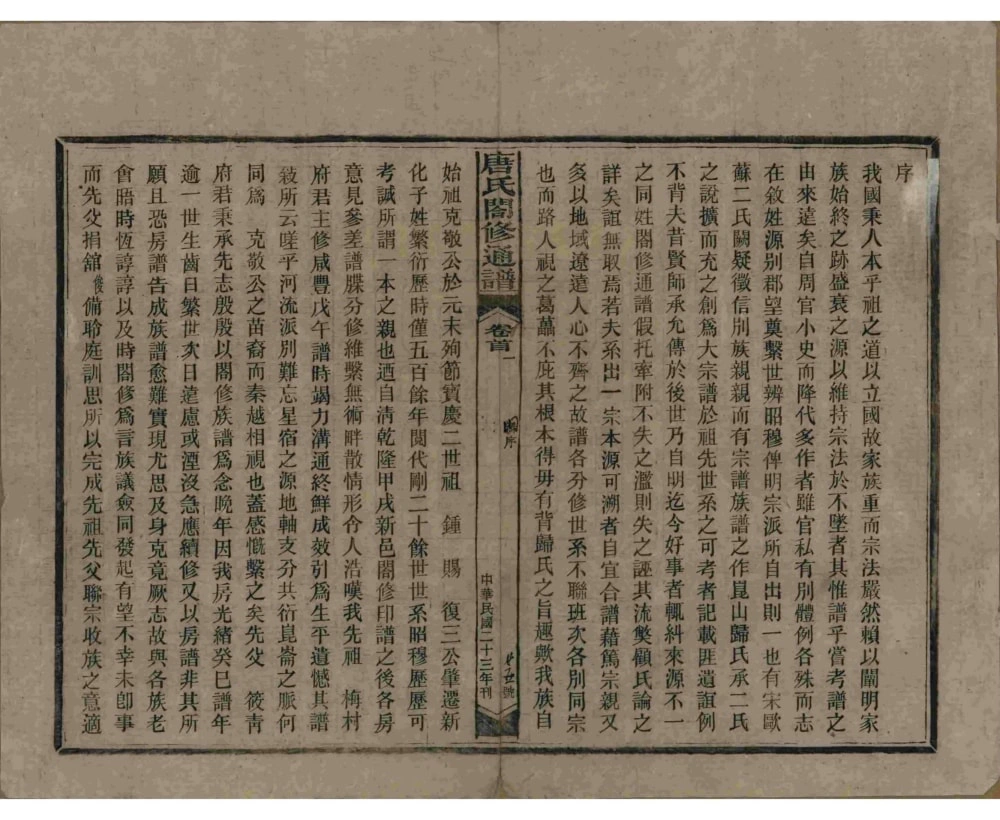 序
我國秉人本乎祖之道以立國故家族重而宗法嚴然賴以闡明家
族始終之跡盛衰之源以維持宗法於不墜者其惟譜乎嘗考譜之
由來遠矣自周官小史而降代多作者雖官私有別體例各殊而志
在敘姓源別郡望奠繫世辨昭穆俾明宗派所自出則一也有宋歐
蘇二氏闕疑徵信別族親親而有宗譜族譜之作崑山歸氏承二氏
之說擴而充之創爲大宗譜於祖先世系之可考者記載匪遺誼例
不背夫昔賢師承允傳於後世乃自明迄今好事者輒糾來源不一
之同姓閤修通譜假托牽附不失之濫則失之誣其流弊顧氏論之
詳矣誼無取焉若夫系出一宗本源可溯者自宜合譜藉篤宗親又
多以地域遼遠人心不齊之故譜各分修世系不聯班次各別同宗
也而路人視之葛藟不庇其根本得毋有背歸氏之旨趣歟我族自
唐氏閤修通譜
卷首一
序
中華民國二十三年刊
號
始祖克敬公於元末殉節寶慶二世祖 鍾 賜 復三公肇遷新
化子姓繁衍歷時僅五百餘年閱代剛二十餘世世系昭穆歷歷可
考誠所謂一本之親也迺自清乾隆甲戌新邑閤修印譜之後各房
意見參差譜牒分修維繫無術畔散情形令人浩嘆我先祖 梅村
府君主修咸豐戊午譜時竭力溝通終鮮成效引爲生平遺憾其譜
敍所云嗟乎河流派別難忘星宿之源地軸支分共衍崑崙之脈何
同爲 克敬公之苗裔而秦越相視也蓋感慨繫之矣先父 筱靑
府君秉承先志殷殷以閤修族譜爲念晚年因我房光緒癸巳譜年
逾一世生齒日繁世次日遠慮或湮沒急應續修又以房譜非其所
願且恐房譜告成族譜愈難實現尤思及身克竟厥志故與各族老
會晤時恆諄諄以及時閤修爲言族議僉同發起有望不幸未卽事
而先父捐舘俊俊備聆庭訓思所以完成先祖先父聯宗收族之意適